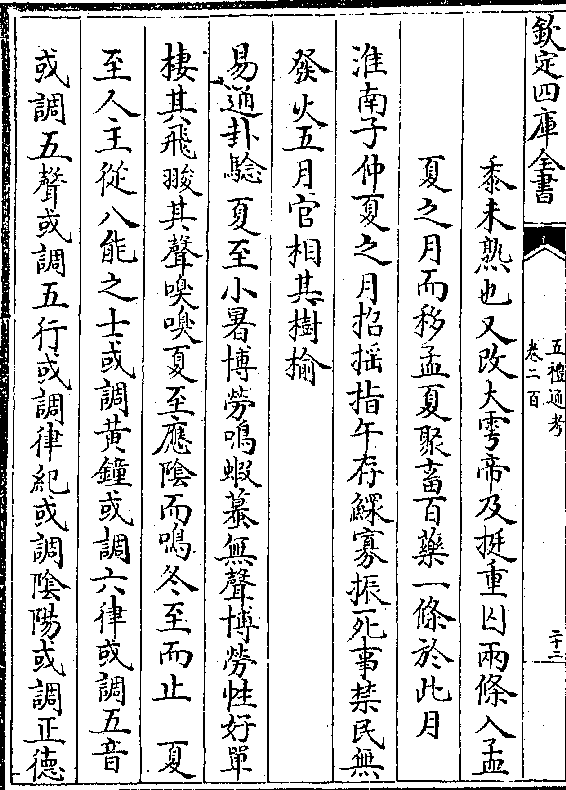 欽定四庫全書
五禮通考
卷二百
二十二
黍未熟也又改大雩帝及挺重囚兩條入孟
夏之月而移孟夏聚畜百藥一條於此月
淮南子仲夏之月招揺指午存鰥寡振死事禁民無
發火五月官相其樹榆
易通卦驗 夏至小暑博勞鳴蝦蟇無聲博勞性好單
棲其飛翪其聲嗅嗅夏至應陰而鳴冬至而止 夏
至人主從八能之士或調黃鐘或調六律或調五音
或調五聲或調五行或調律紀或調陰陽或調正德